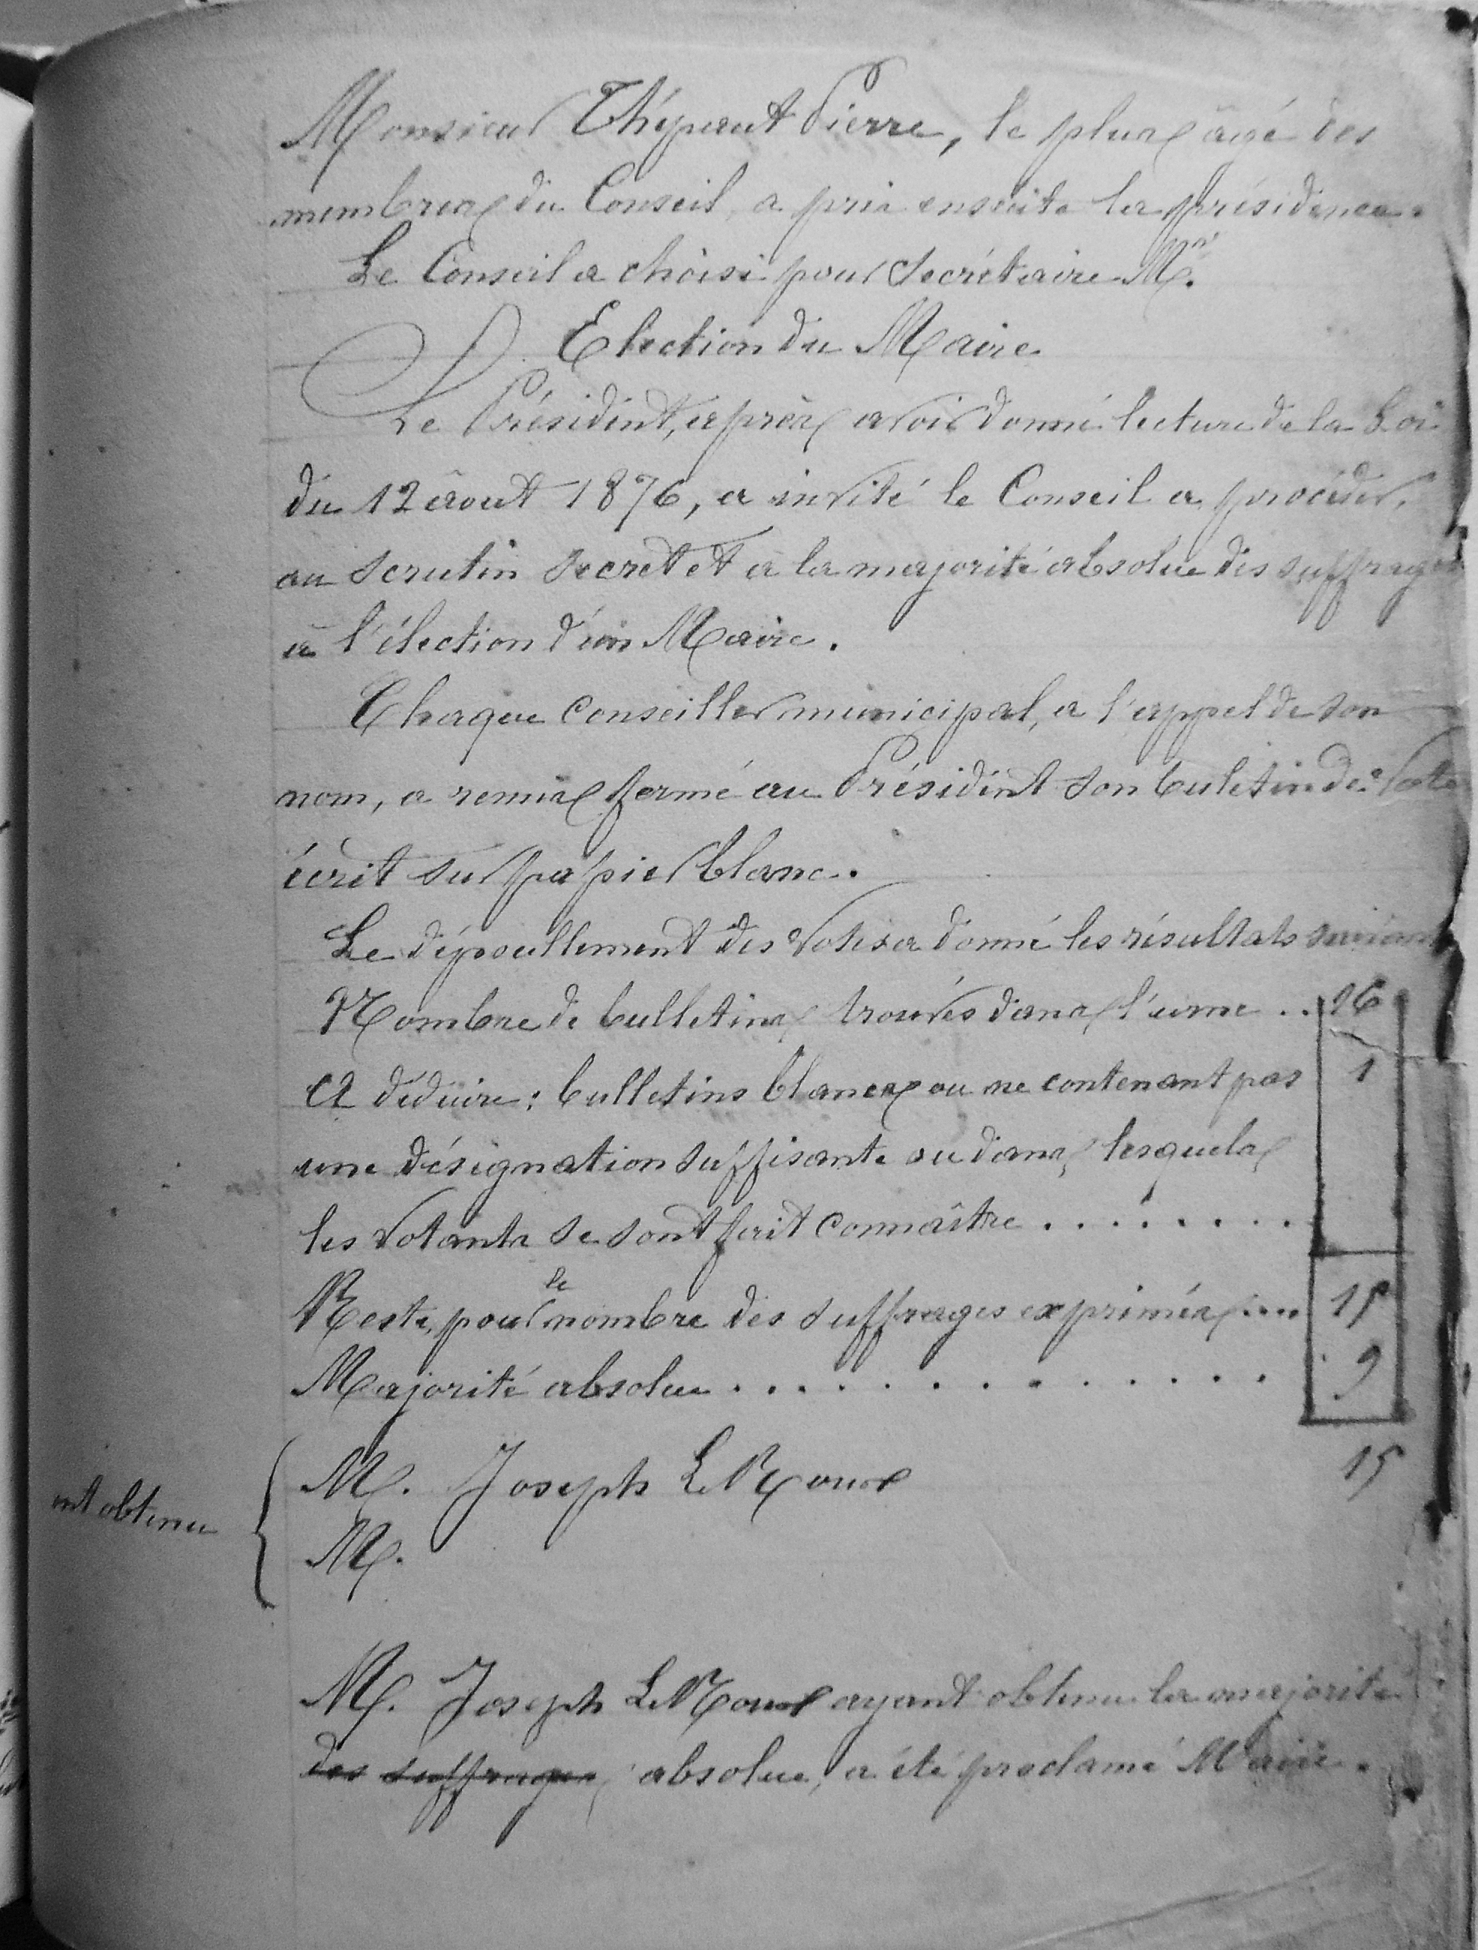 Monsieur Thépaut Pierre, le plus âgé des
membres du Conseil, a pris ensuite la présidence.
Le Conseil a choisi pour secrétaire Mr.
Election du Maire
Le Président, après avoir donné lecture de la Loi
du 12 août 1876, a invité le Conseil a procéder,
au scrutin secret et a la majorité absolue des suffrages
à l'élection d'un Maire.
Chaque Conseiller municipal, a l'appel de son
nom, a remis fermé au Président son buletin de Vote
écrit sur papier blanc.
Le dépouillement des Votes a donné les résultats suivants
Nombre de bulletins trouvés dans l'urne .. 16
A déduire : bulletins blancs ou ne contenant pas 1
une désignation suffisante ou dans lesquels
les Votants se sont fait connaître ........
Reste, pour le nombre des suffrages exprimés .... 15
Majorité absolue .............. 9
M. Joseph Le Roux 15
ont obtenu
M.
M. Joseph Le Roux ayant obtenu la majorité
des suffrages absolue, a été proclamé Maire.